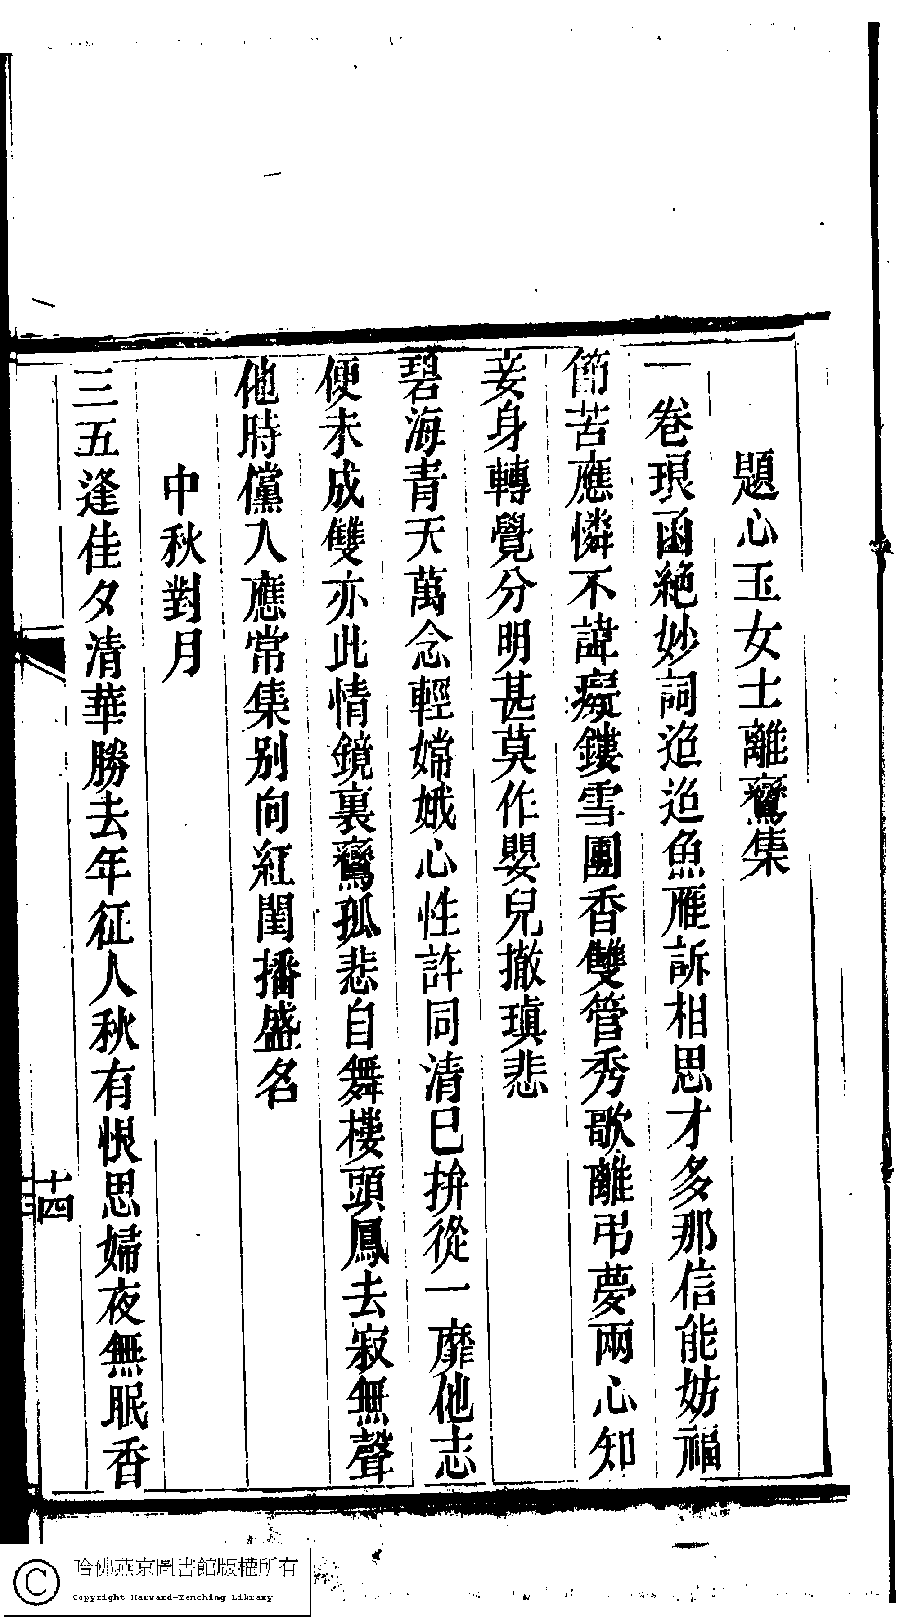 題心玉女士離鸞集
一卷琅函絕妙詞迢迢魚雁訴相思才多那信能妨福
節苦應憐不諱癡鏤雪團香雙管秀歌離弔夢兩心知
妾身轉覺分明甚莫作嬰兒撤瑱悲
碧海青天萬念輕嫦娥心性許同清巳拚從一靡他志
便未成雙亦此情鏡裏鸞孤悲自舞樓頭鳳去寂無聲
他時儻入應常集别向紅閨播盛名
中秋對月
三五逢佳夕清華勝去年征人秋有恨思婦夜無眠香
十四
哈佛燕京圖書館版權所有
Copyright Harvard-Yenching Library